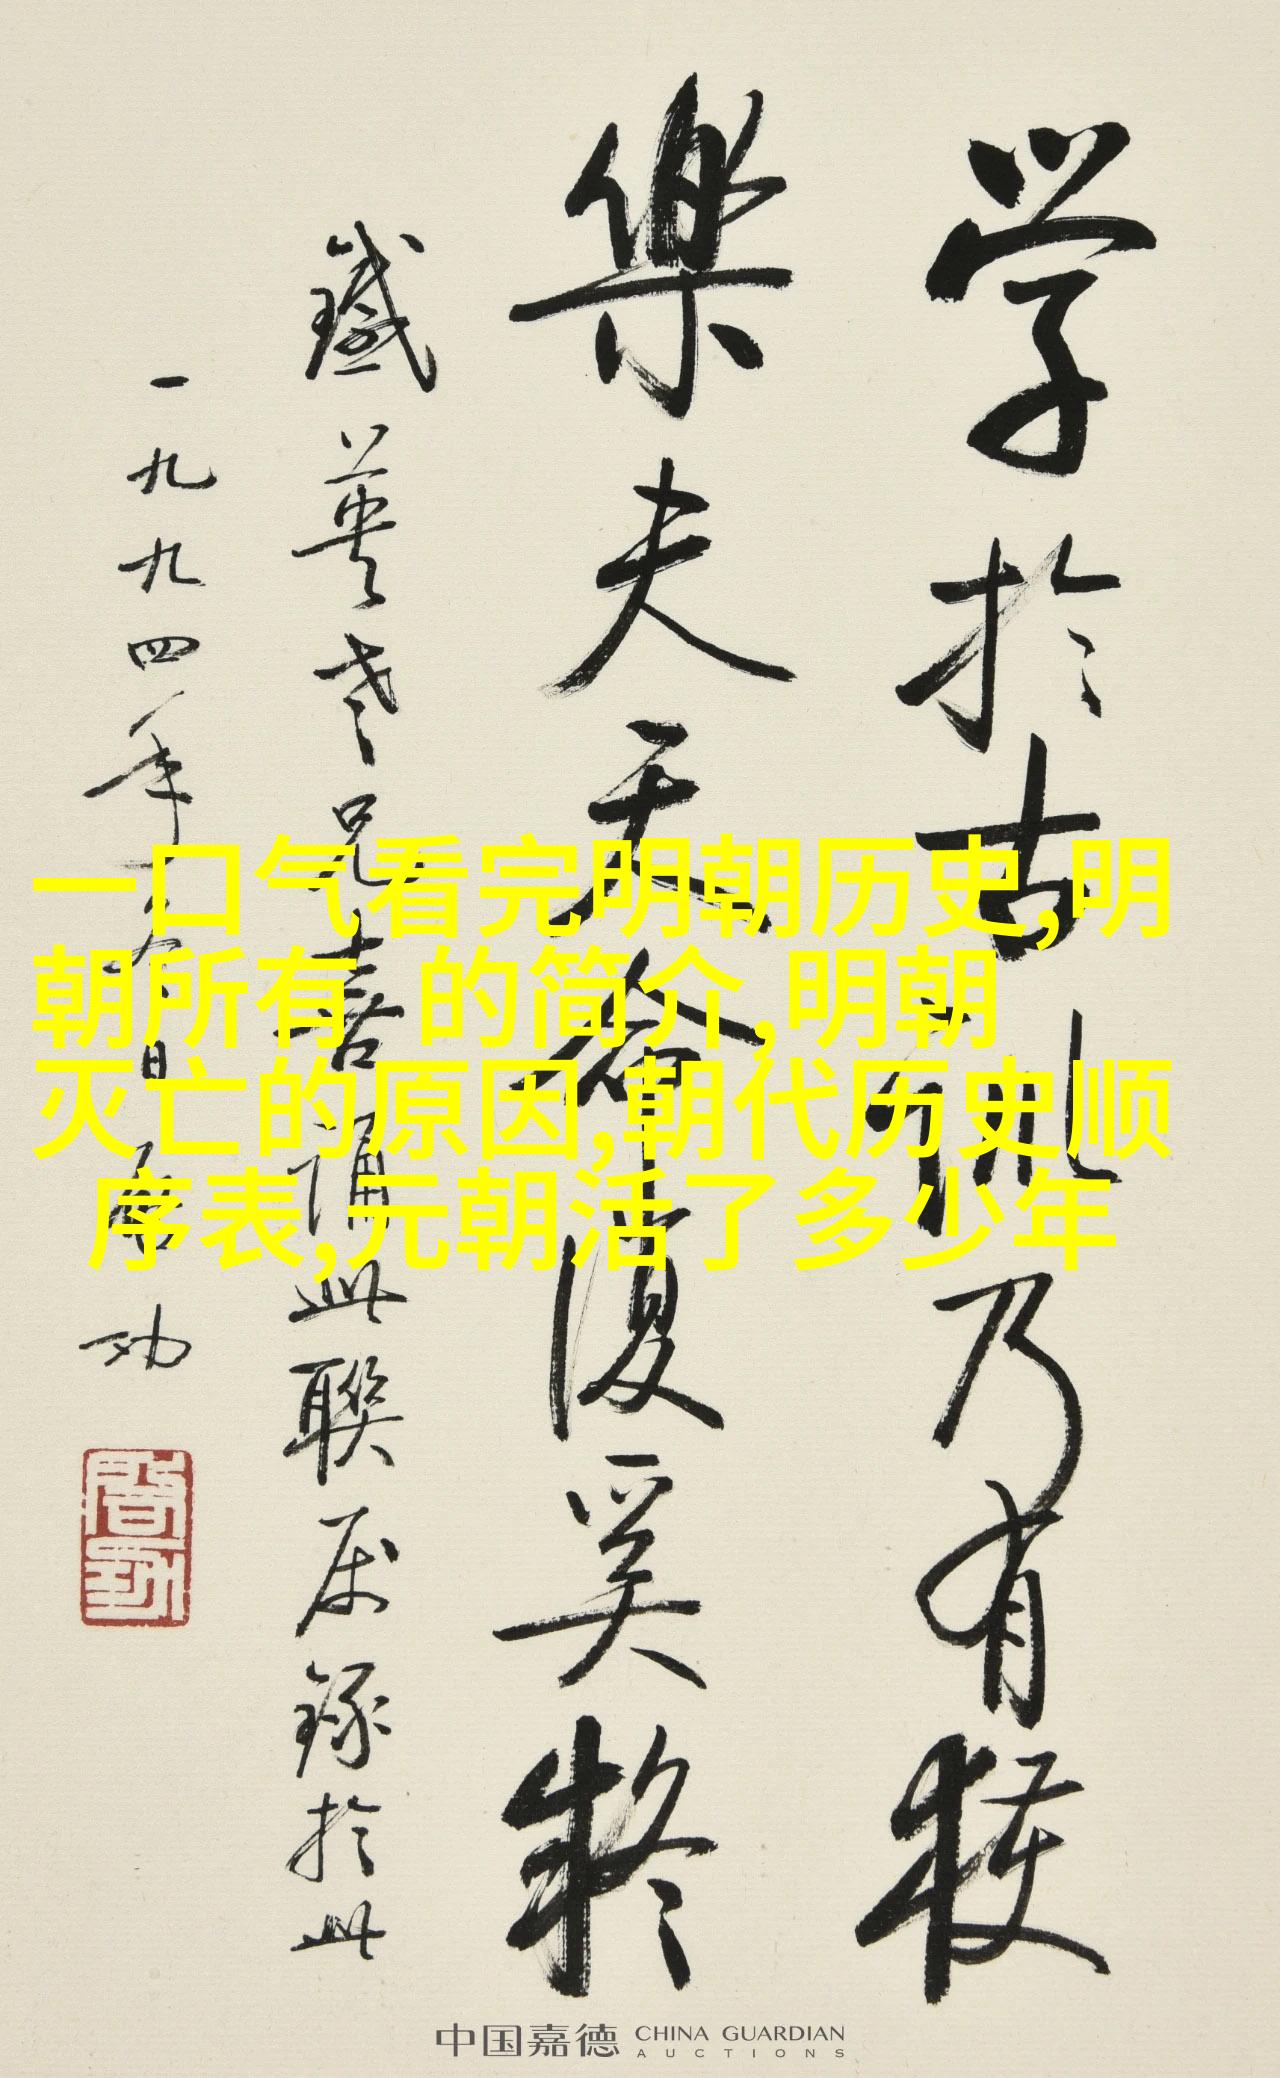 学於古訓乃有獲
樂夫天命復奚疑
鐵英老兄喜誦此聯屬錄於此
一九九四年夏日啟功
一口气看完明朝历史,明
朝所有 的简介,明朝
灭亡的原因,朝代历史顺
序表,元朝活了多少年
中国嘉德 CHINA GUARDIAN
AUCTIONS